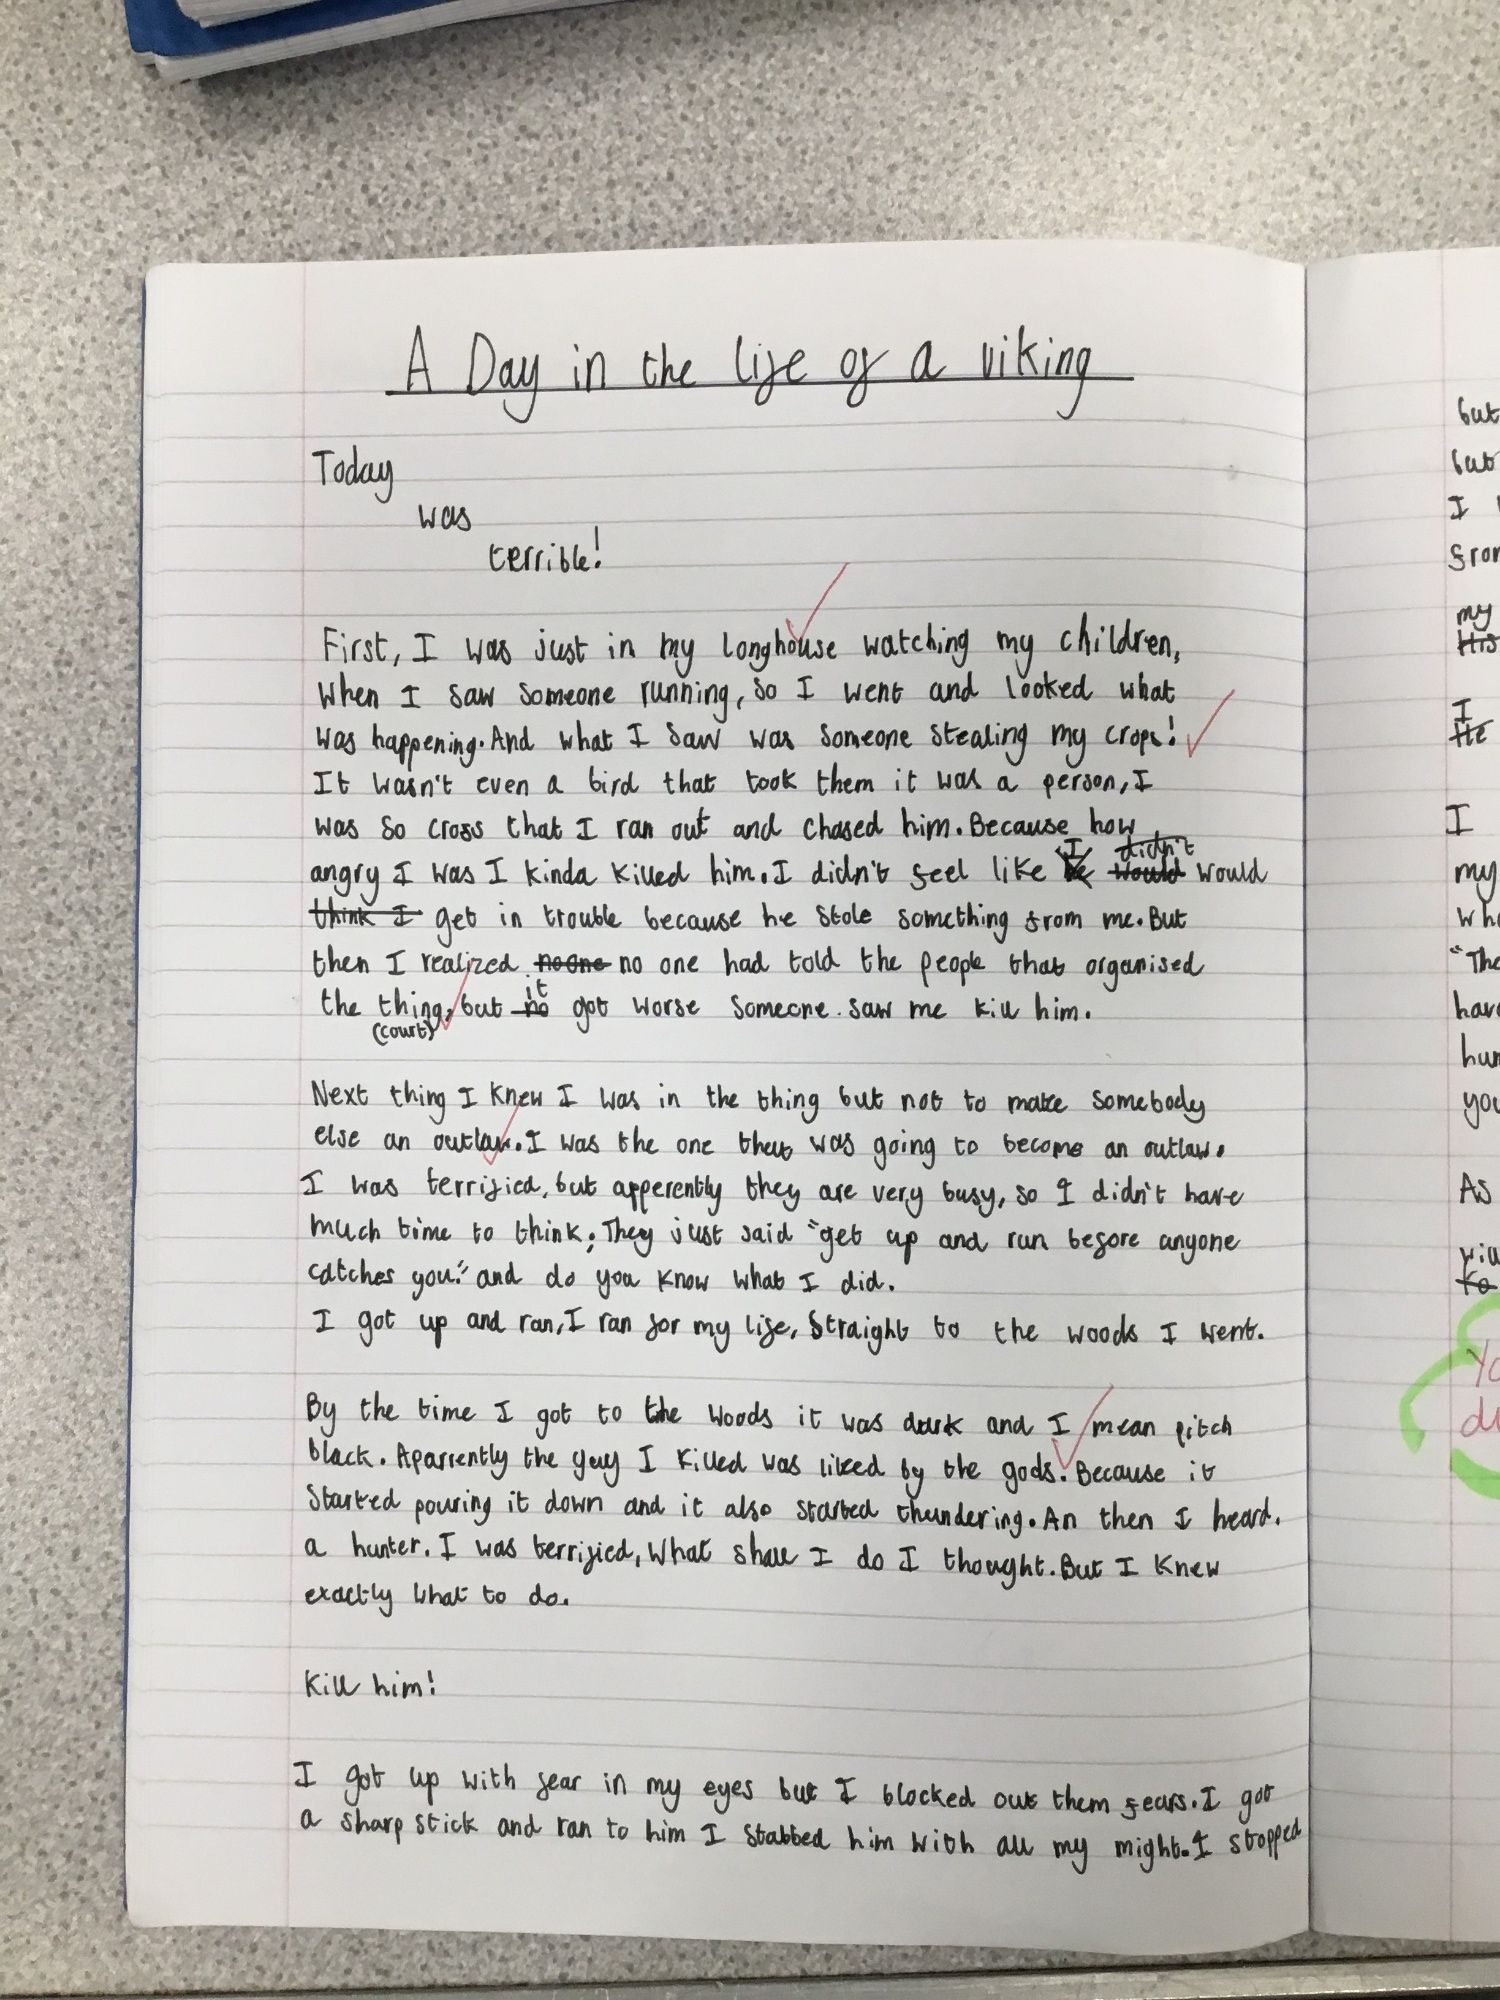 A Day in the life of a viking
Today
was
terrible!
First, I was just in my longhouse watching my children,
When I saw someone running, so I went and looked what
was happening. And what I saw was someone stealing my crops!
It wasn't even a bird that took them it was a person, I
was so cross that I ran out and chased him. Because how
I didn't
angry I was I kinda killed him. I didn't feel like would would
think I get in trouble because he stole something from me. But
then I realized noone no one had told the people that organised
it
the thing, but no got worse someone saw me kill him.
(court)
Next thing I knew I was in the thing but not to make somebody
else an outlaw. I was the one that was going to become an outlaw.
I was terrified, but apperently they are very busy, so I didn't have
much time to think. They just said "get up and run before anyone
catches you." and do you know what I did.
I got up and ran, I ran for my life, straight to the woods I went.
By the time I got to the woods it was dark and I mean pitch
black. Aparrently the guy I killed was liked by the gods. Because it
started pouring it down and it also started thundering. An then I heard.
a hunter. I was terrified, What shall I do I thought. But I knew
exactly what to do.
Kill him!
I got up with fear in my eyes but I blocked out them fears. I got
a sharp stick and ran to him I stabbed him with all my might. I stopped
but
but
I
my
I
He
I
my
"The
you
As